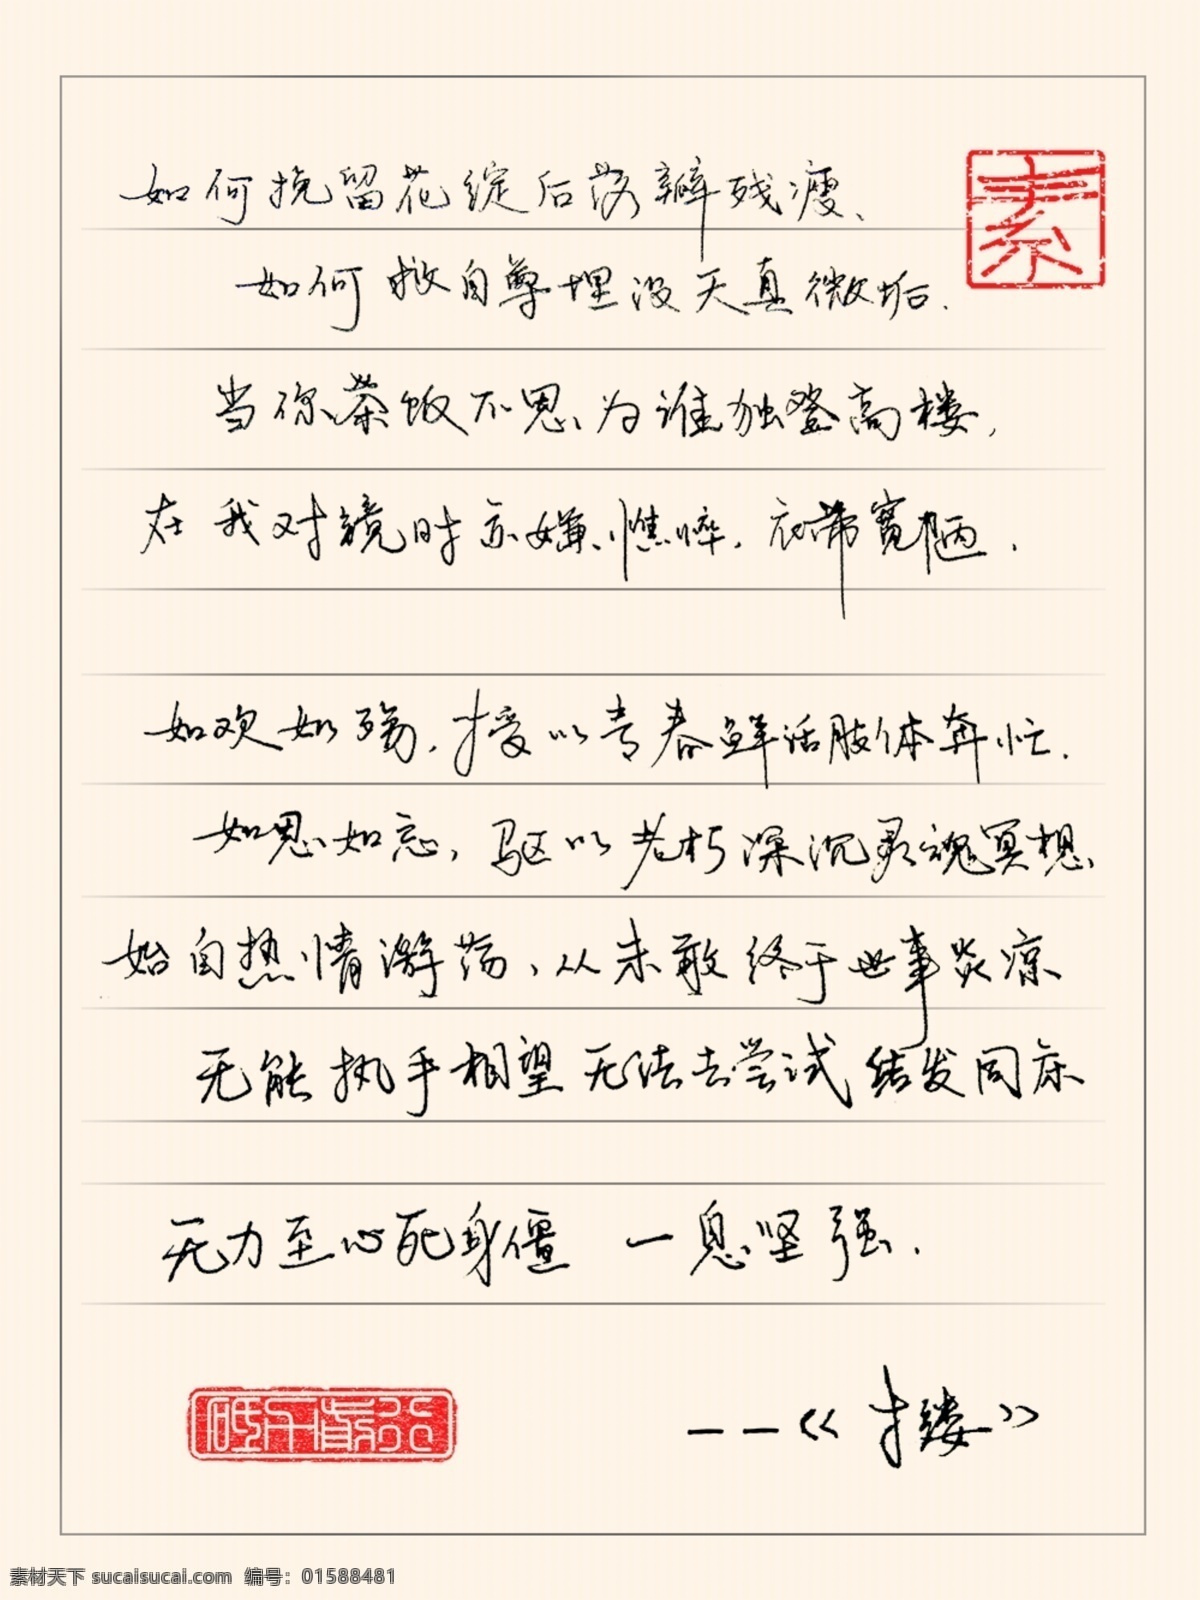 如何挽留花绽后落瓣残瘦、
素
如何救自尊埋没天真微垢.
当你茶饭不思、为谁独登高楼,
在我对镜时亦嫌憔悴.衣带宽陋.
如欢如殇.接受以青春鲜活肢体奔忙.
如思如忘,驱以老朽深沉灵魂冥想、
始自热情激荡、从未敢终于世事炎凉
无能执手相望 无法去尝试 结发同床
无力至心死身僵 一息坚强.
——《
》
素材天下 sucaisucai.com 编号：01588481